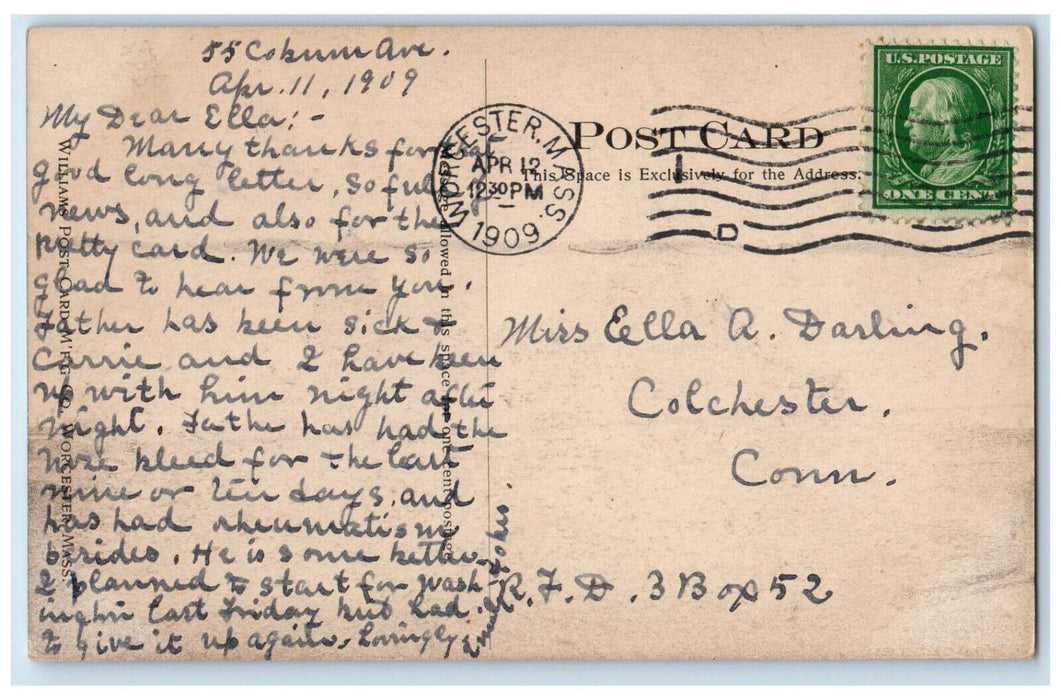 55 Coburn Ave.
Apr. 11, 1909
My Dear Ella:-
Many thanks for that
good long letter, so full of
news, and also for the
pretty card. We were so
glad to hear from you.
Father has been sick &
Carrie and I have been
up with him night after
night. Father has had the
nose bleed for the last
nine or ten days, and
has had rheumatism
besides. He is some better.
I planned to start for Wash-
ington last Friday but had
to give it up again. Lovingly
WILLIAMS POST CARD M'F'G CO., WORCESTER, MASS.
Message allowed in this space for one cent postage
POST CARD
This Space is Exclusively for the Address.
WORCESTER, MASS.
APR 12
12 30 PM
1909
1
D
U.S. POSTAGE
ONE CENT
Miss Ella A. Darling,
Colchester,
Conn.
R.F.D. 3 Box 52